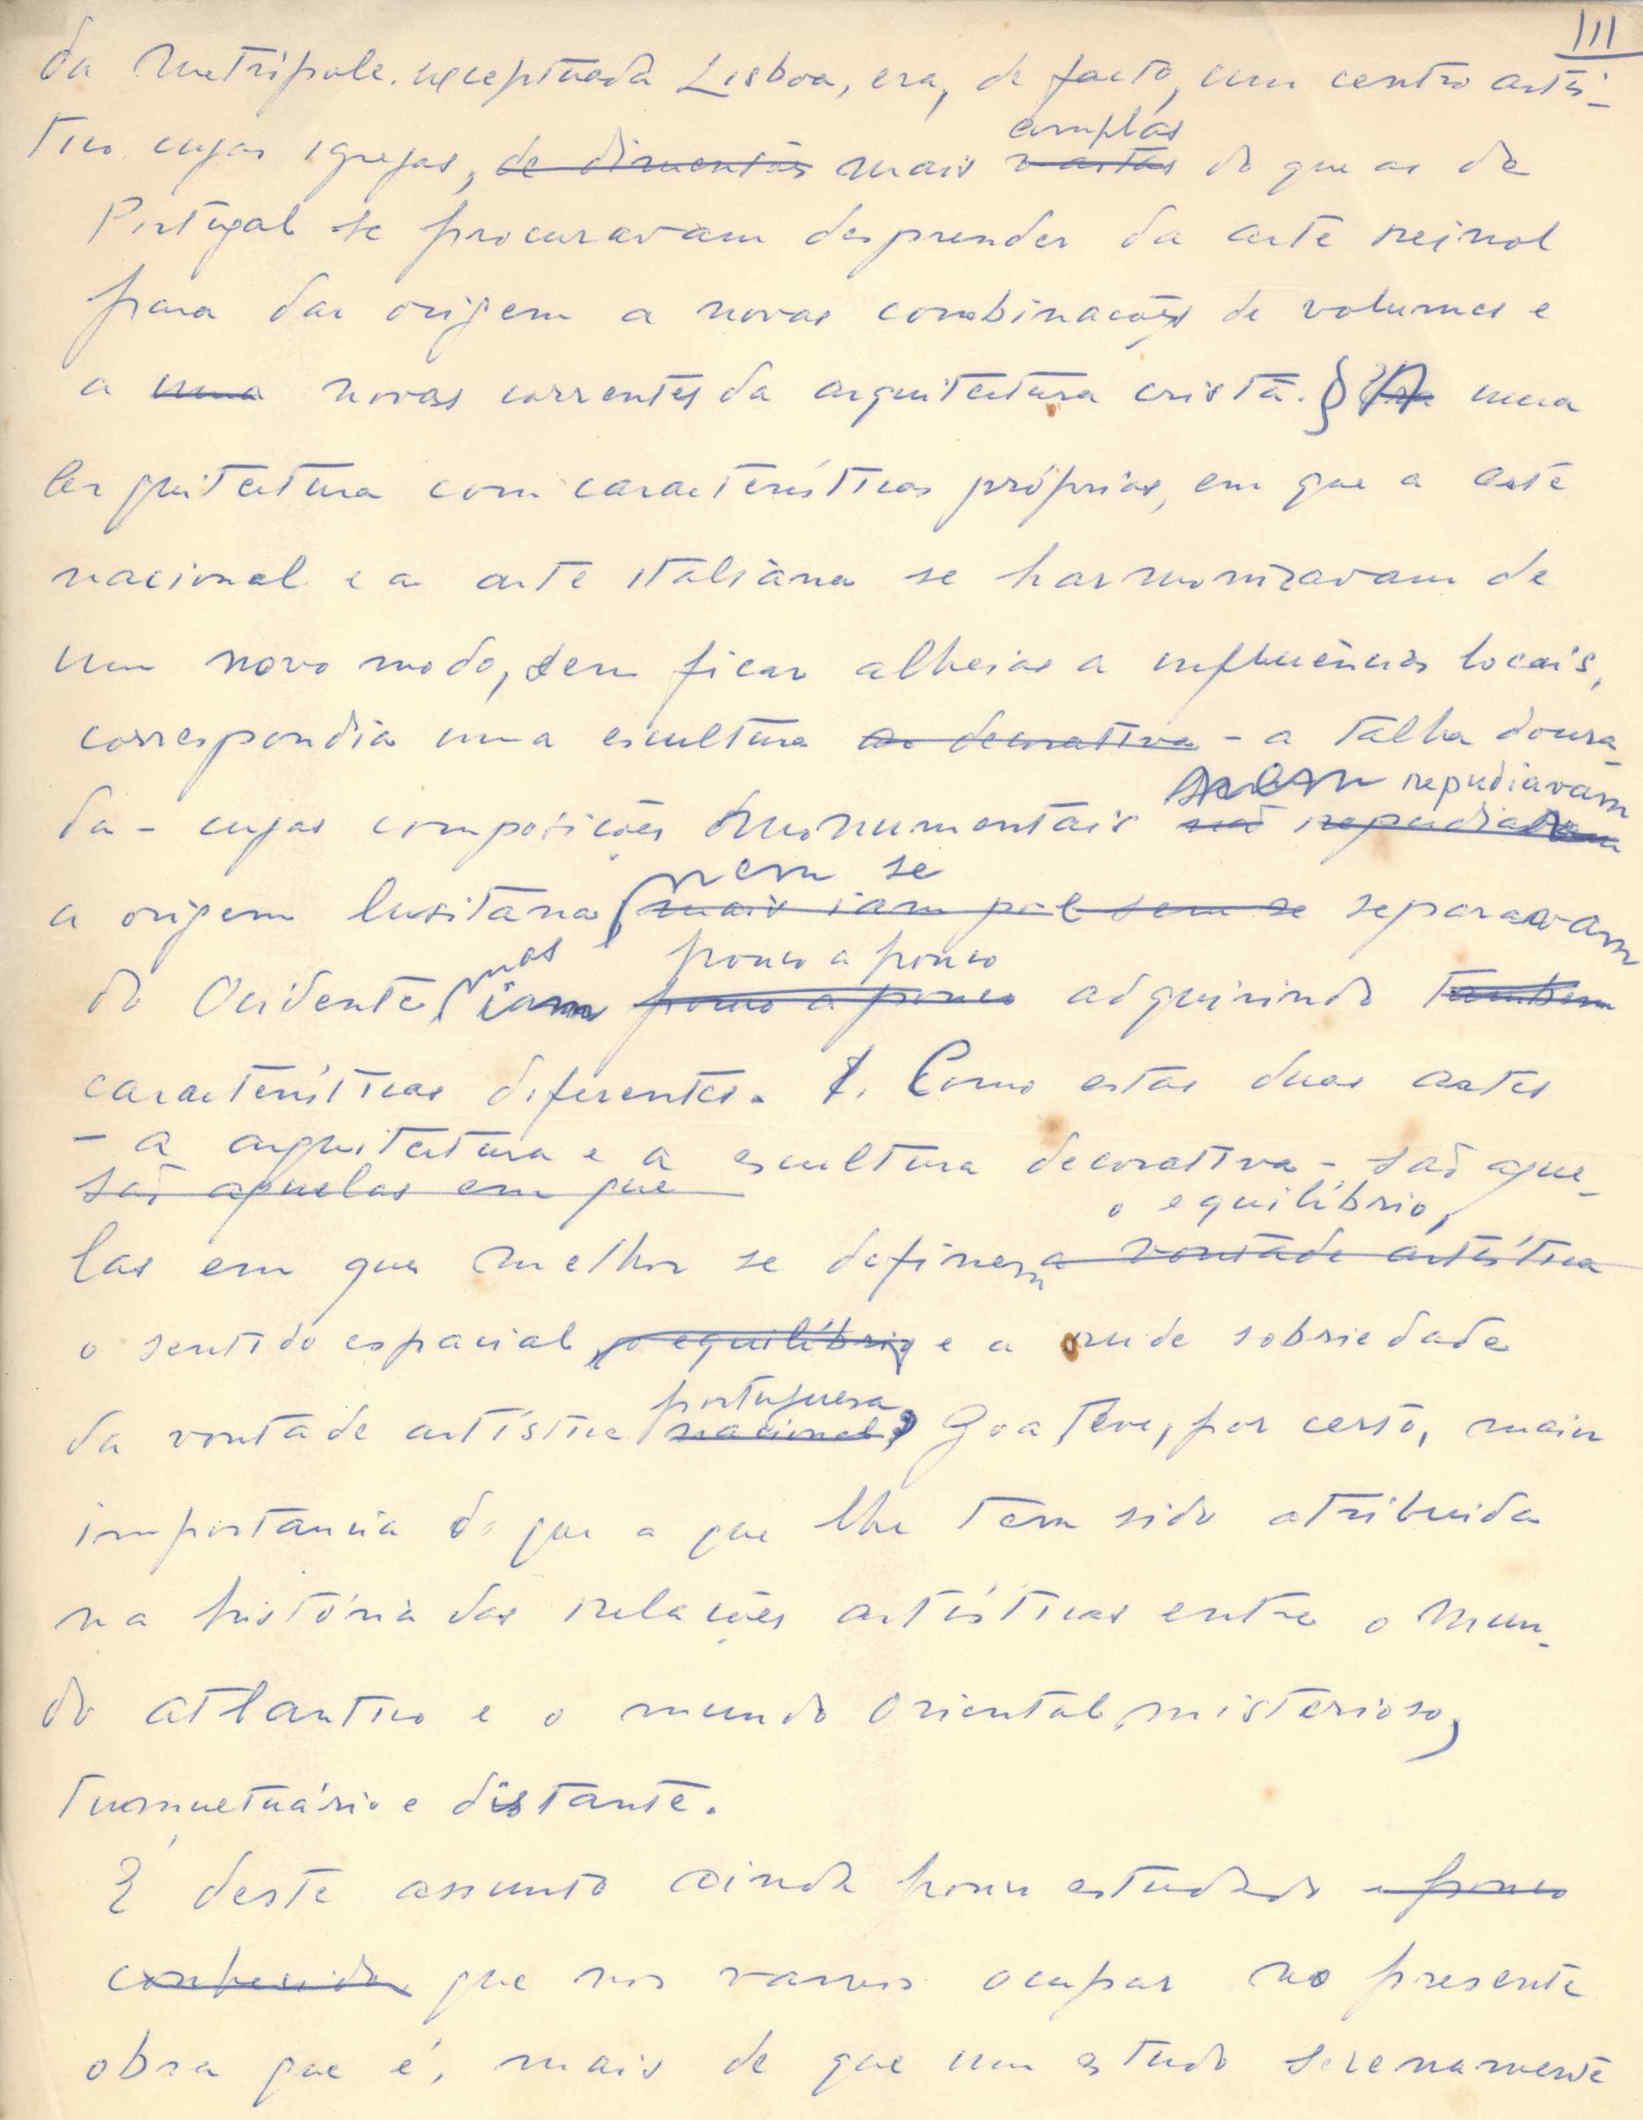 III
da Metrópole. exceptuada Lisboa, era, de facto, um centro artís-
tico cujas igrejas, de dimensões mais vastas amplas do que as de
Portugal se procuravam desprender da arte reinol
para dar origem a novas combinações de volumes e
a uma novas correntes da arquitectura cristã. § A uma
arquitectura com características próprias, em que a arte
nacional e a arte italiana se harmonizavam de
um novo modo, sem ficar alheias a influências locais,
correspondia uma escultura decorativa - a talha doura-
da - cujas composições monumentais não repudiavam nem repudiavam
a origem lusitana, mais iam pol sem se nem se separavam
do Ocidente, mas iam pouco a pouco pouco a pouco adquirindo tambem
características diferentes. Como estas duas artes
- a arquitectura e a escultura decorativa - são aque-
são aquelas em que
las em que melhor se definem a vontade artística o equilíbrio,
o sentido espacial, o equilíbrio e a rude sobriedade
da vontade artística nacional, portuguesa, Goa teve, por certo, maior
importancia do que a que lhe tem sido atribuida
na história das relações artísticas entre o Mun-
do atlantico e o mundo oriental, misterioso,
tumultuário e distante.
É deste assunto ainda pouco estudado e pouco
conhecido que nos vamos ocupar no presente
obra que é, mais de que um estudo serenamente